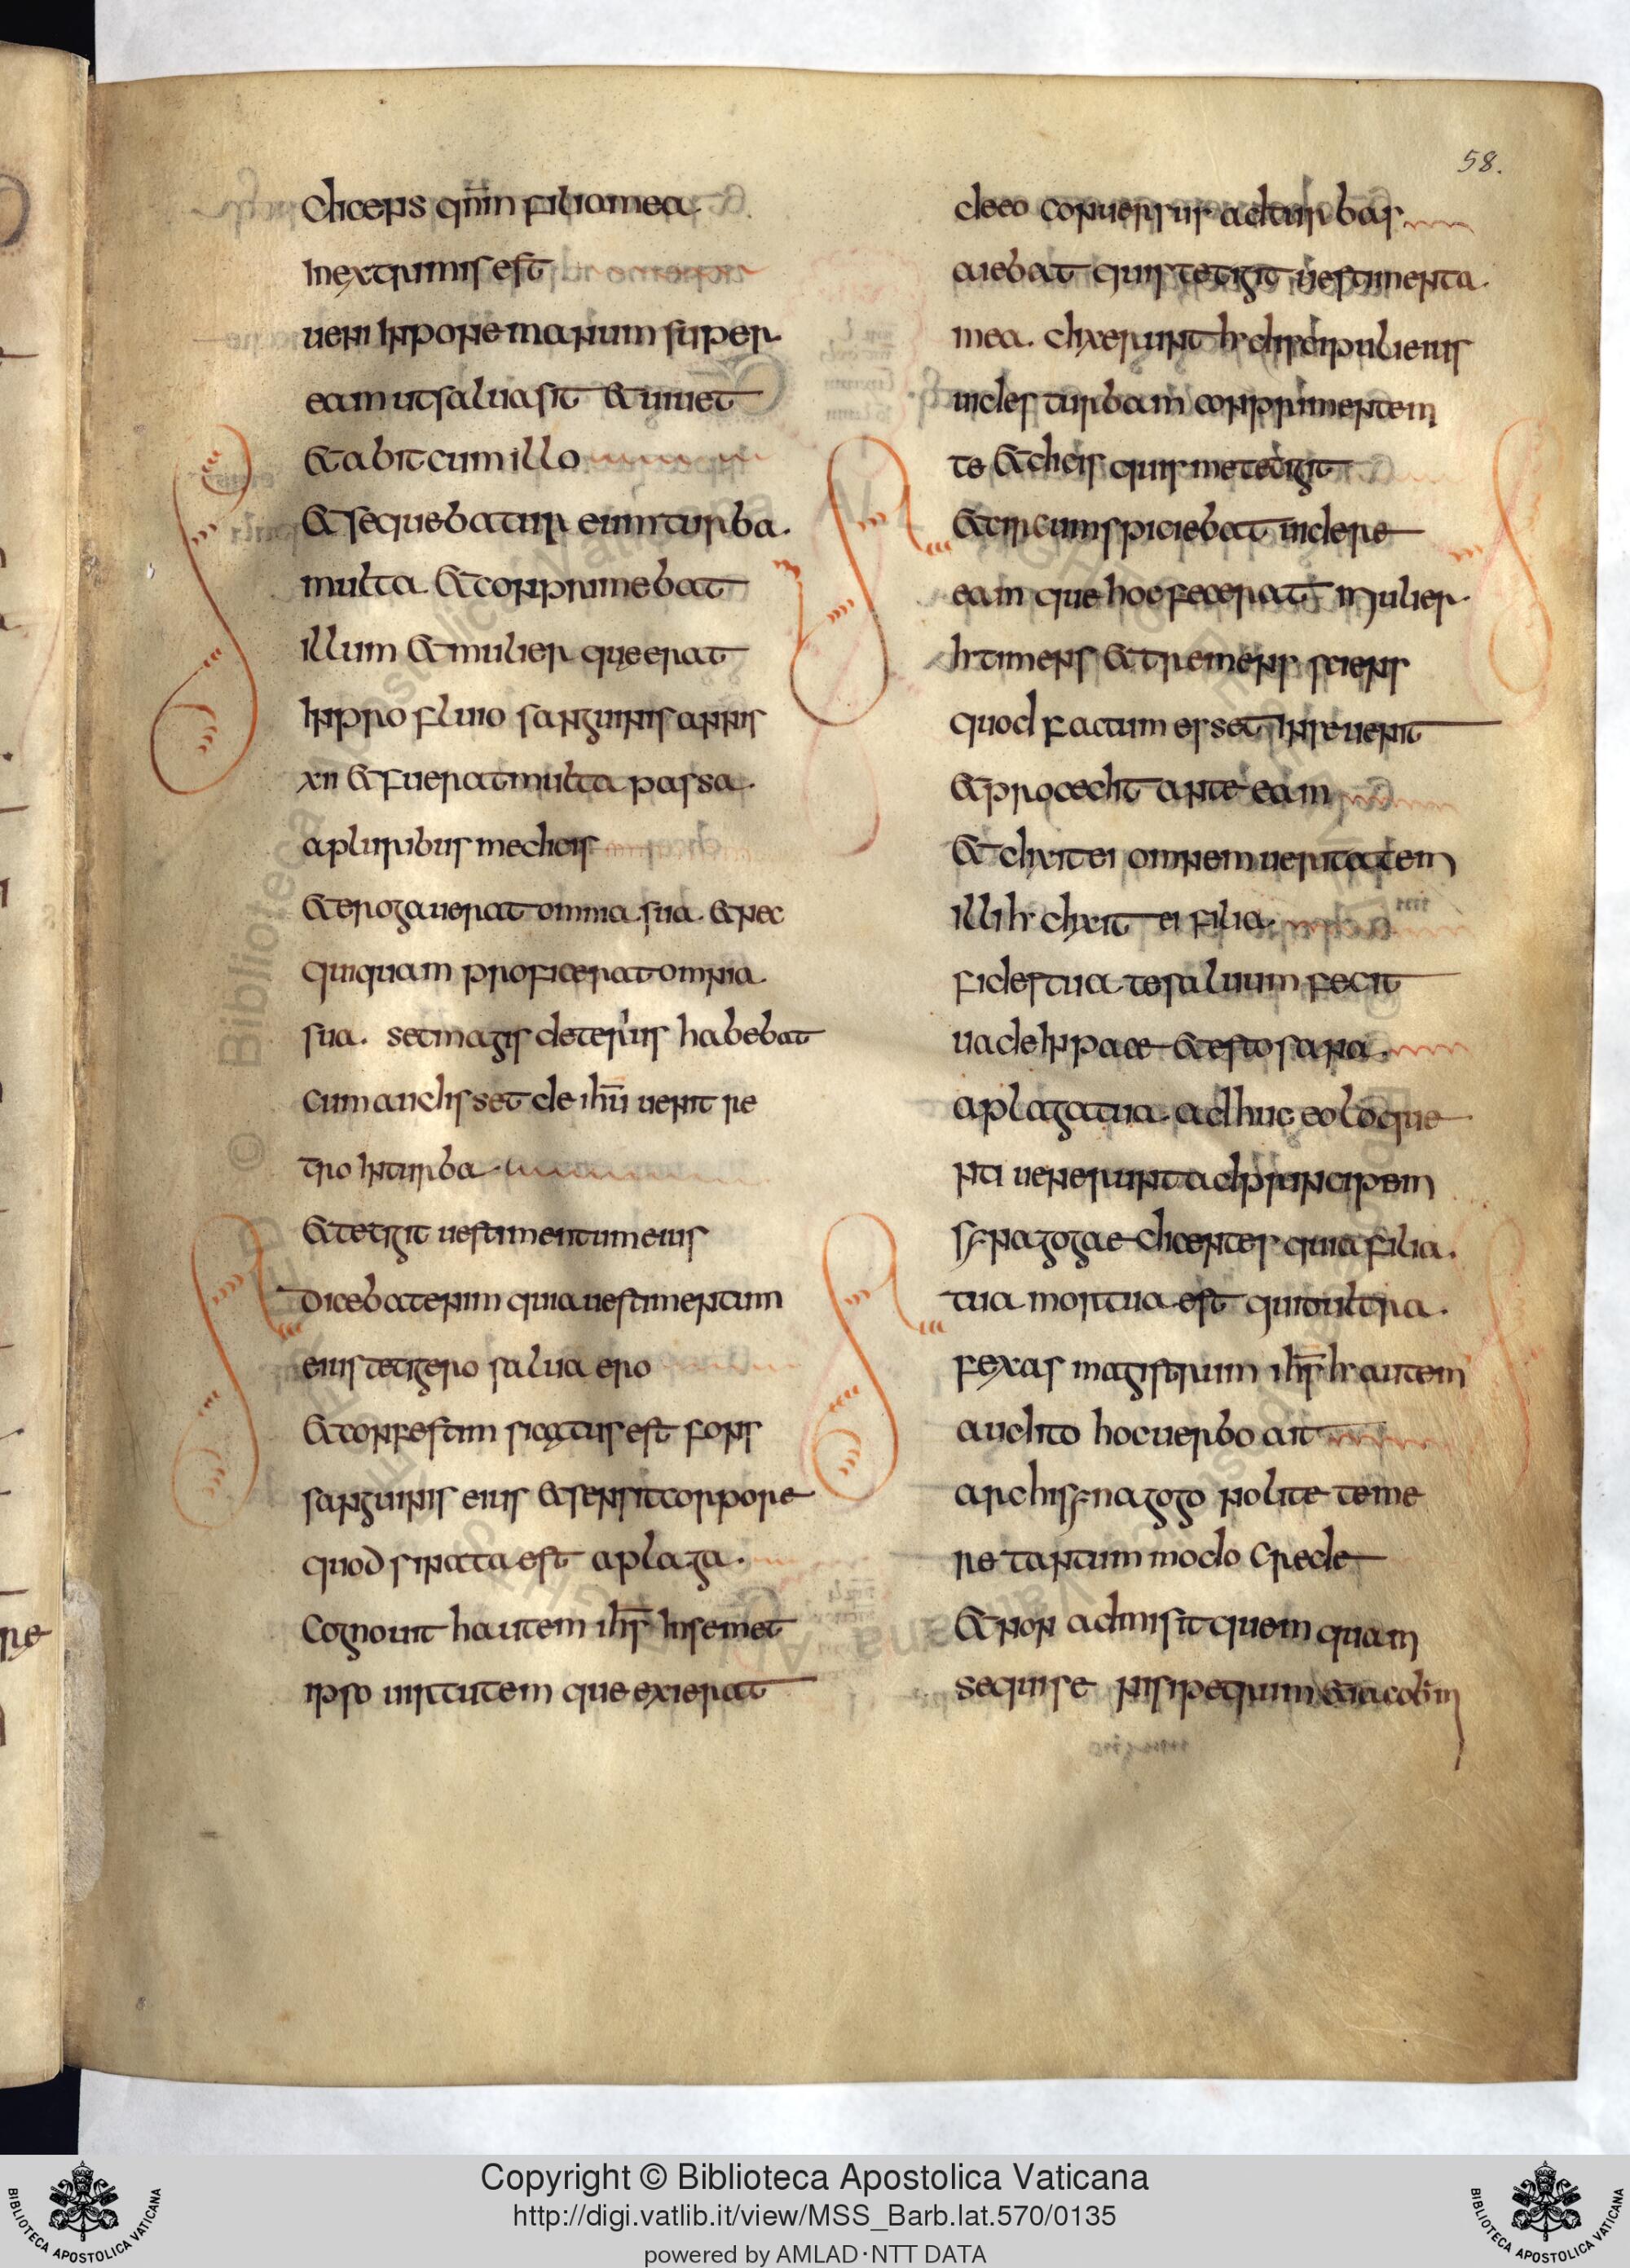 58.
dicens qnm filia mea
in extrimis est
ueni inpone manum super
eam ut salua sit et uiuet
et abit cum illo
et sequebatur eum turba.
multa et conprimebat
illum et mulier que erat
in profluio sanguinis annis
xii et fuerat multa passa.
a pluribus medicis
et erogauerat omnia sua. et nec
quiquam proficerat omnia
sua. set magis deterius habebat
cum audisset de ihū uenit re
tro in turba
et tetigit uestimentum eius
dicebat enim quia uestimentum
eius tetigero salua ero
et confestim siccatus est fons
sanguinis eius et sensit corpore
quod sanata est a plaga.
Cognouit h autem ihs in semet
ipso uirtutem que exierat
de eo conuersus ad turbas
aiebat quis tetigit uestimenta.
mea. dixerunt h discipuli eius
uides turbam conprimentem
te et dicis quis me tetigit
et circumspiciebat uidere
eam que hoc fecerat mulier
h timens et tremens sciens
quod factum esset in se uenit
et procedit ante eam
et dixit ei omnem ueritatem
illi h dixit ei filia.
fides tua te saluum fecit
uade in pace et esto sana.
a plaga tua. adhuc eo loque
nti uenerunt ad principem
synagogae dicentes quia filia.
tua mortua est quid ultra.
fexas magistrum ihs h autem
audito hoc uerbo ait
archisynagogo nolite teme
re tantum modo crede
et non admisit quem quam
sequi se nisi petrum et iacobum
Copyright © Biblioteca Apostolica Vaticana
http://digi.vatlib.it/view/MSS_Barb.lat.570/0135
powered by AMLAD·NTT DATA
BIBLIOTECA APOSTOLICA VATICANA
BIBLIOTECA APOSTOLICA VATICANA